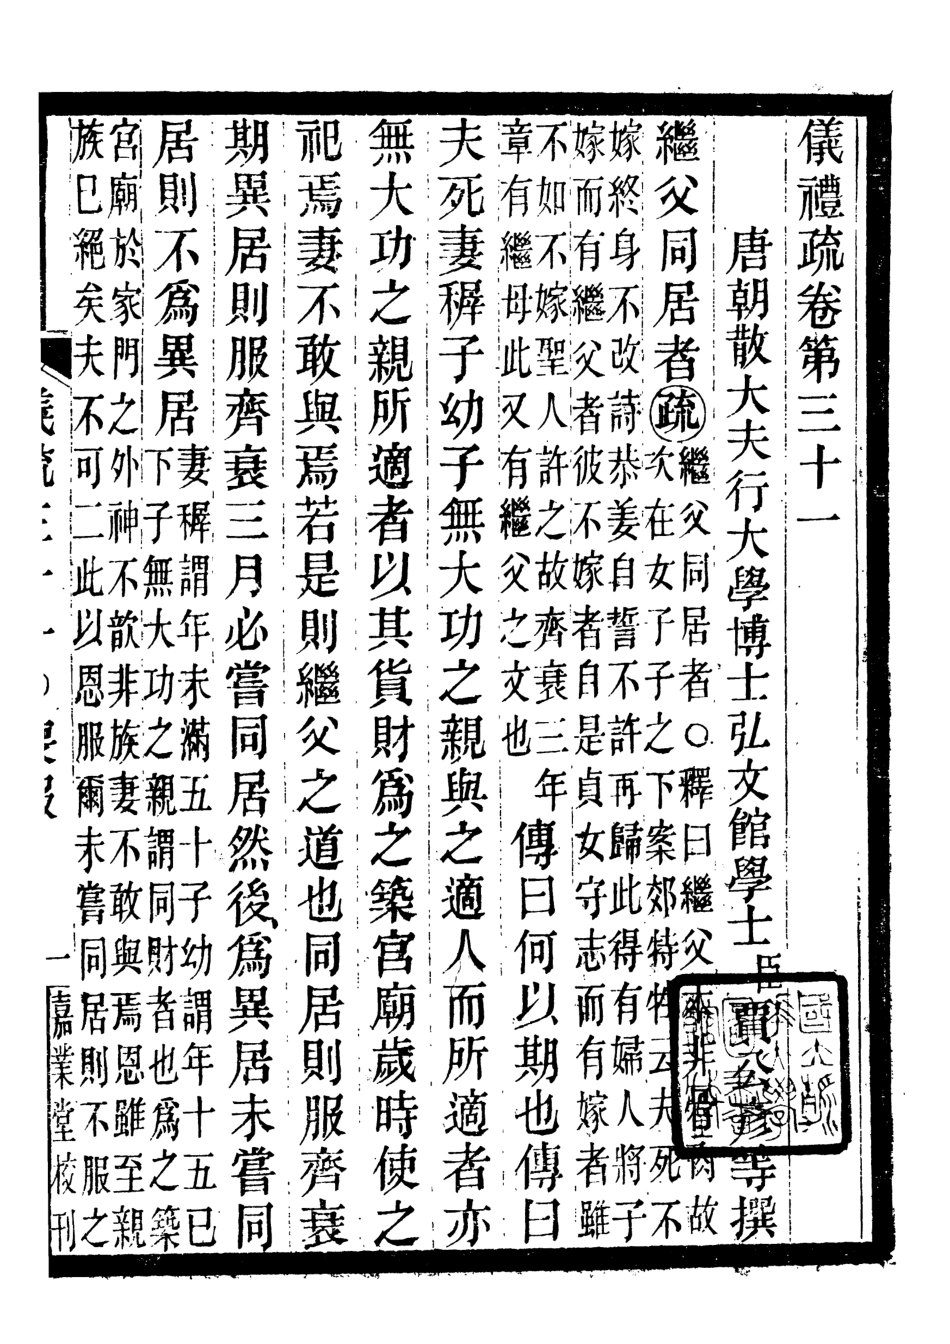 儀禮疏卷第三十一
唐朝散大夫行大學博士弘文館學士臣賈公彥等撰
繼父同居者疏繼父同居者○釋曰繼父本非骨肉故
次在女子子之下案郊特牲云夫死不
嫁終身不改詩恭姜自誓不許再歸此得有婦人將子
嫁而有繼父者彼不嫁者自是貞女守志而有嫁者雖
不如不嫁聖人許之故齊衰三年
章有繼母此又有繼父之文也
傳曰何以期也傳曰
夫死妻穉子幼子無大功之親與之適人而所適者亦
無大功之親所適者以其貨財爲之築宮廟歲時使之
祀焉妻不敢與焉若是則繼父之道也同居則服齊衰
期異居則服齊衰三月必嘗同居然後爲異居未嘗同
居則不爲異居妻穉謂年未滿五十子幼謂年十五已
下子無大功之親謂同財者也爲之築
宮廟於家門之外神不歆非族妻不敢與焉恩雖至親
族已絕矣夫不可二此以恩服爾未嘗同居則不服之
儀疏三十一 ○喪服 一 嘉業堂校刊